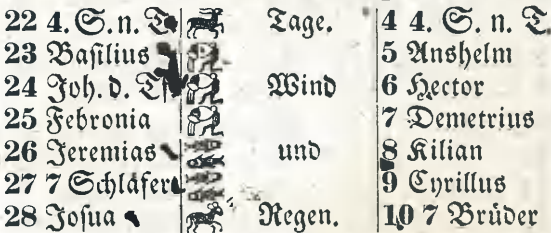 22 4. S. n. T. Tage. 4 4. S. n. T.
23 Baſilius 5 Anshelm
24 Joh. d. T. Wind 6 Hector
25 Febronia 7 Demetrius
26 Jeremias und 8 Kilian
27 7 Schläfer 9 Cyrillus
28 Joſua Regen. 10 7 Brüder